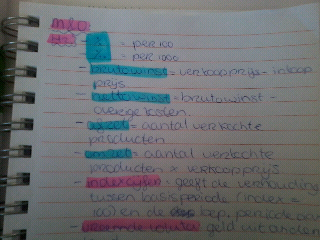 M&O
- % = per 100
- ‰ = per 1000
- brutowinst = verkoopprijs - inkoop
prijs
- nettowinst = brutowinst
overige kosten.
- afzet = aantal verkochte
producten
- omzet = aantal verkochte
producten x verkoopprijs
- indexcijfer = geeft de verhouding
tussen basisperiode (index =
100) en de periode aan
- vreemde valuta = geld uit andere